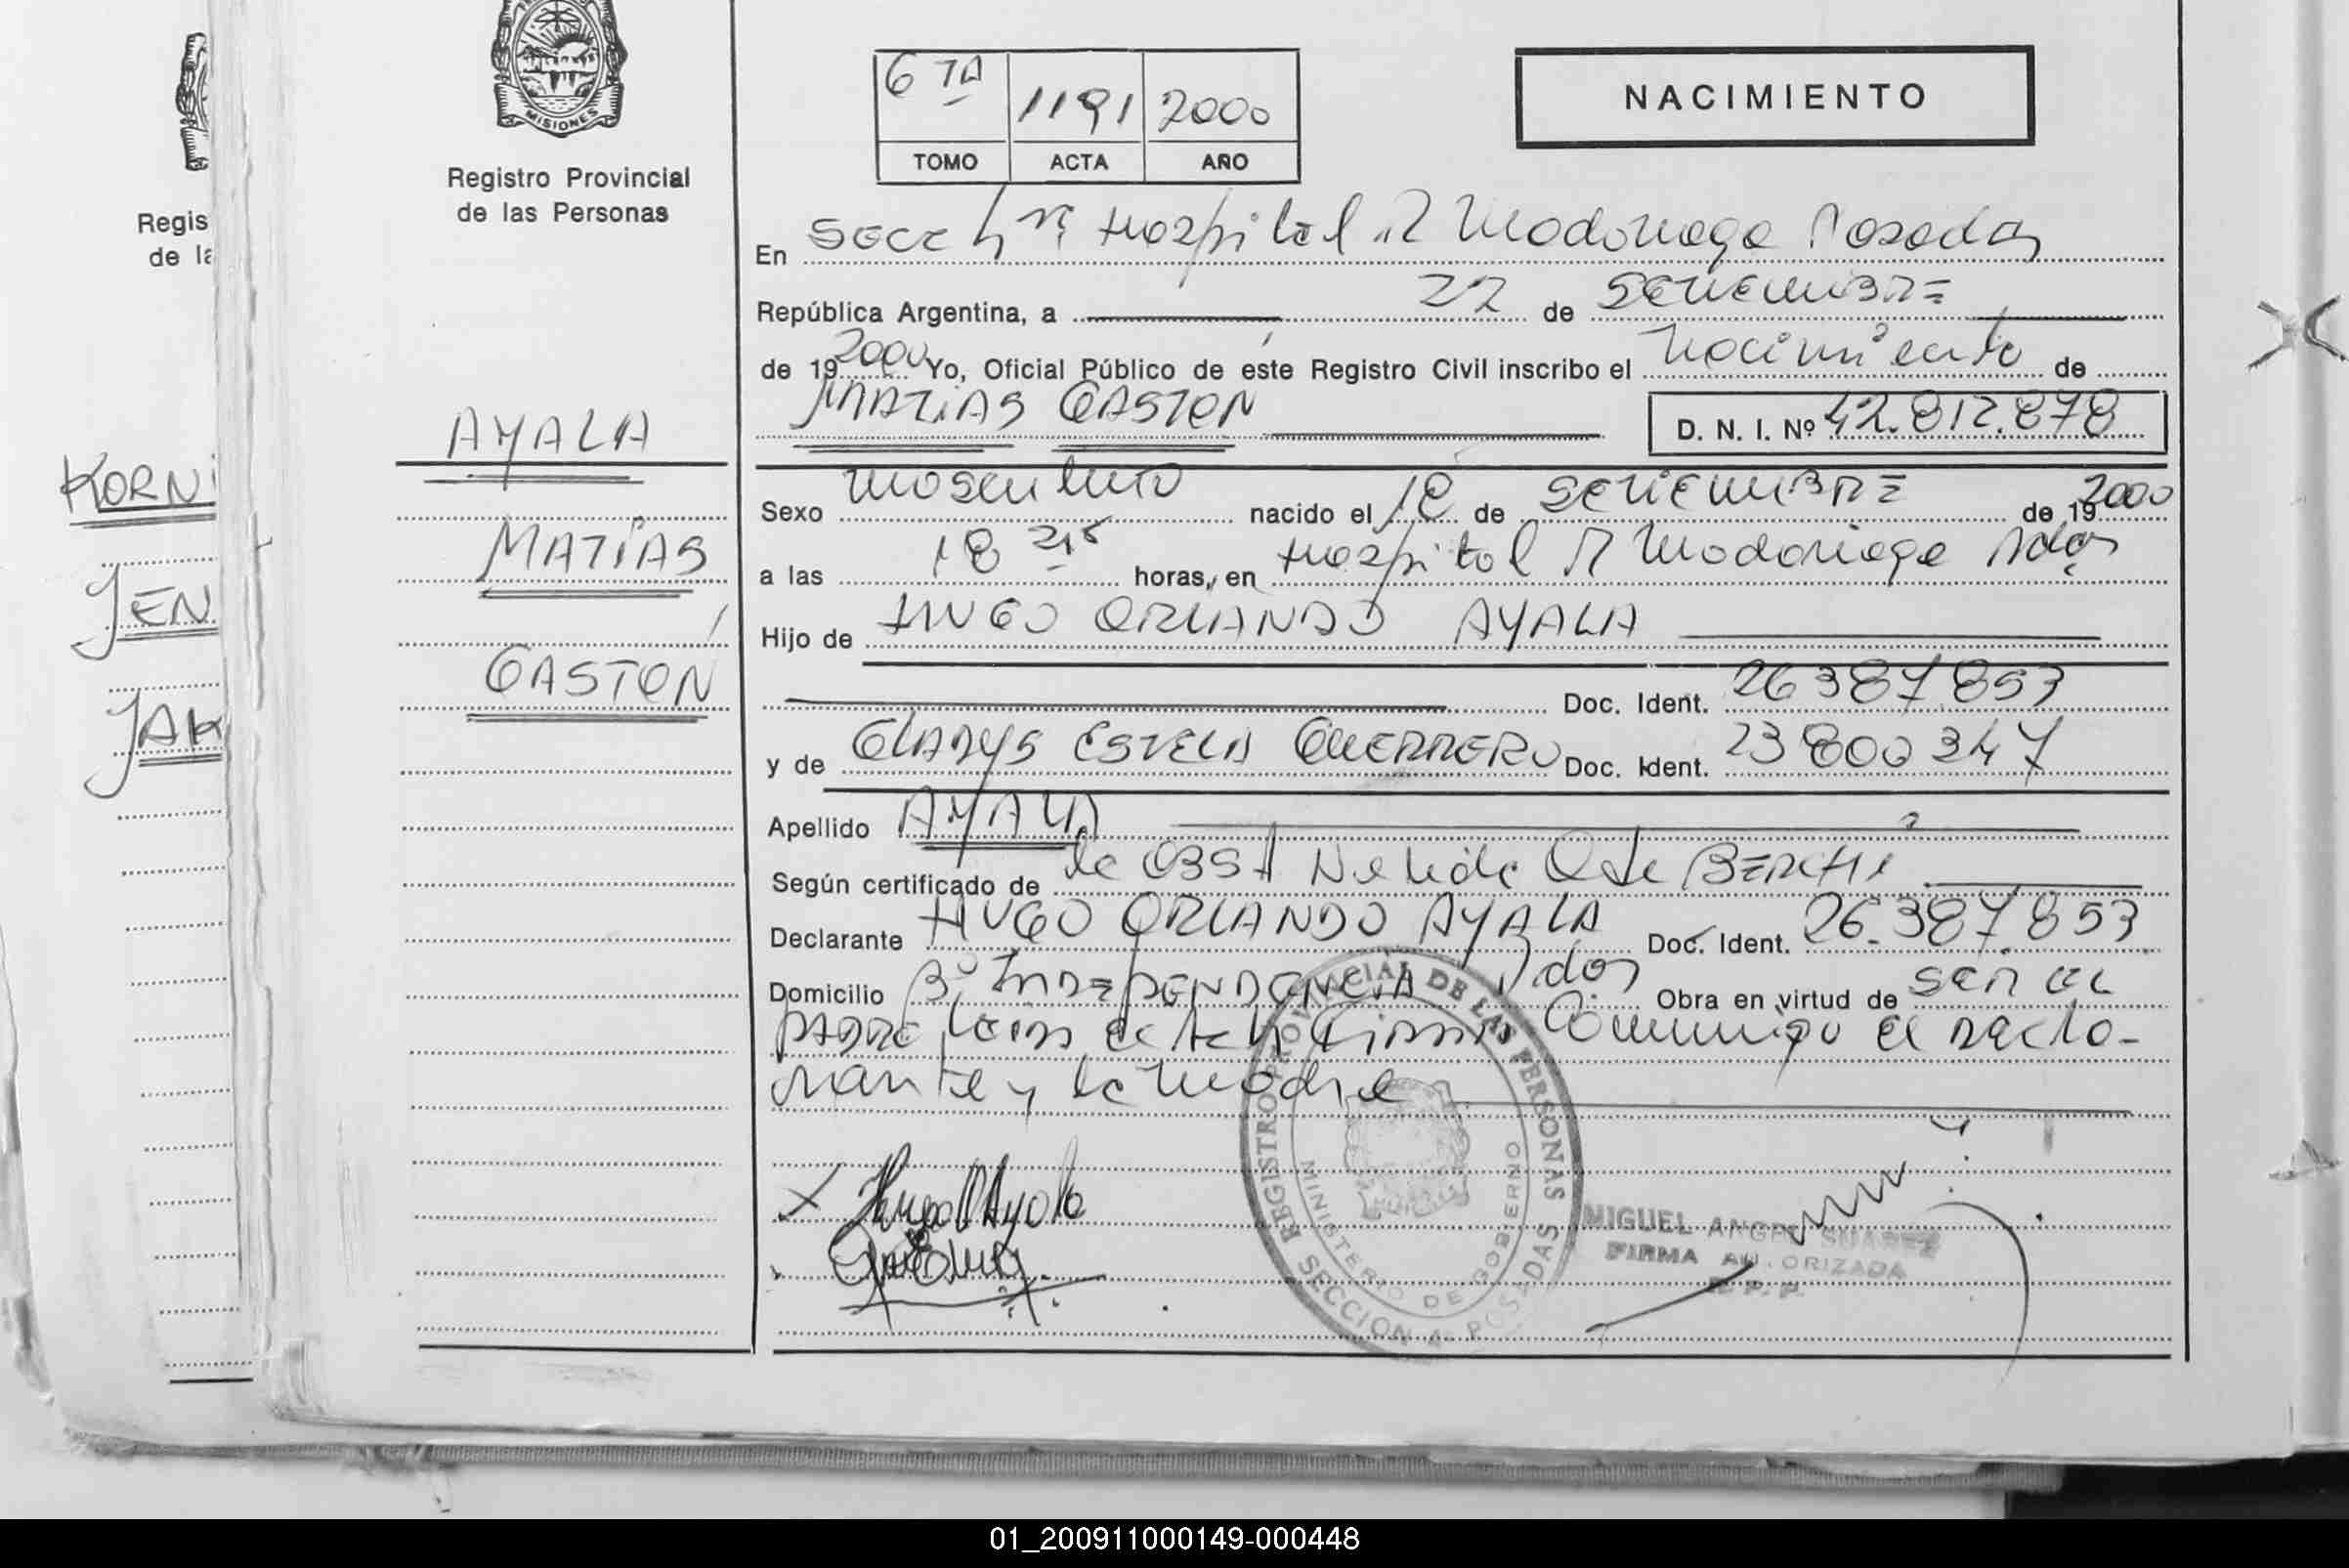 MISIONES
Registro Provincial
de las Personas
Regis
de la
KORNI
JEN
JAK
AYALA
MATÍAS
GASTON
6 TA 1191 2000
TOMO ACTA AÑO
NACIMIENTO
En Secc 4ta Hospital R Madariaga Posadas
República Argentina, a 22 de SETIEMBRE
de 19 2000 Yo, Oficial Público de éste Registro Civil inscribo el Nacimiento de
MATIAS GASTON D. N. I. Nº 42.812.878
Sexo masculino nacido el 18 de SETIEMBRE de 19 2000
a las 18 horas, en Hospital R Madariaga Pdas
Hijo de HUGO ORLANDO AYALA
Doc. Ident. 26387853
y de GLADYS ESTELA GUERRERO Doc. Ident. 23800347
Apellido AYALA
Según certificado de la OBST Nelida de
Declarante HUGO ORLANDO AYALA Doc. Ident. 26.387.853
Domicilio Bº INDEPENDENCIA Pdas Obra en virtud de SER EL
PADRE Leida el Acta Firman Conmigo el Decla-
rante y la Madre
Hugo O Ayala
REGISTRO PROVINCIAL DE LAS PERSONAS
MINISTERIO DE GOBIERNO
SECCION 4ª POSADAS
MIGUEL ANGEL SUAREZ
FIRMA AUTORIZADA
R. P. P.
01_200911000149-000448